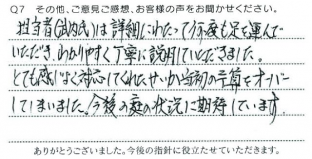 Q7 その他、ご意見ご感想、お客様の声をお聞かせください。
担当者(武内氏)は詳細にわたって何度も足を運んで
いただき、わかりやすく丁寧に説明していただきました。
とても感じよく対応してくれたせいか当初の予算をオーバー
してしまいました。今後の庭の状況に期待しています。
ありがとうございました。今後の指針に役立たせていただきます。